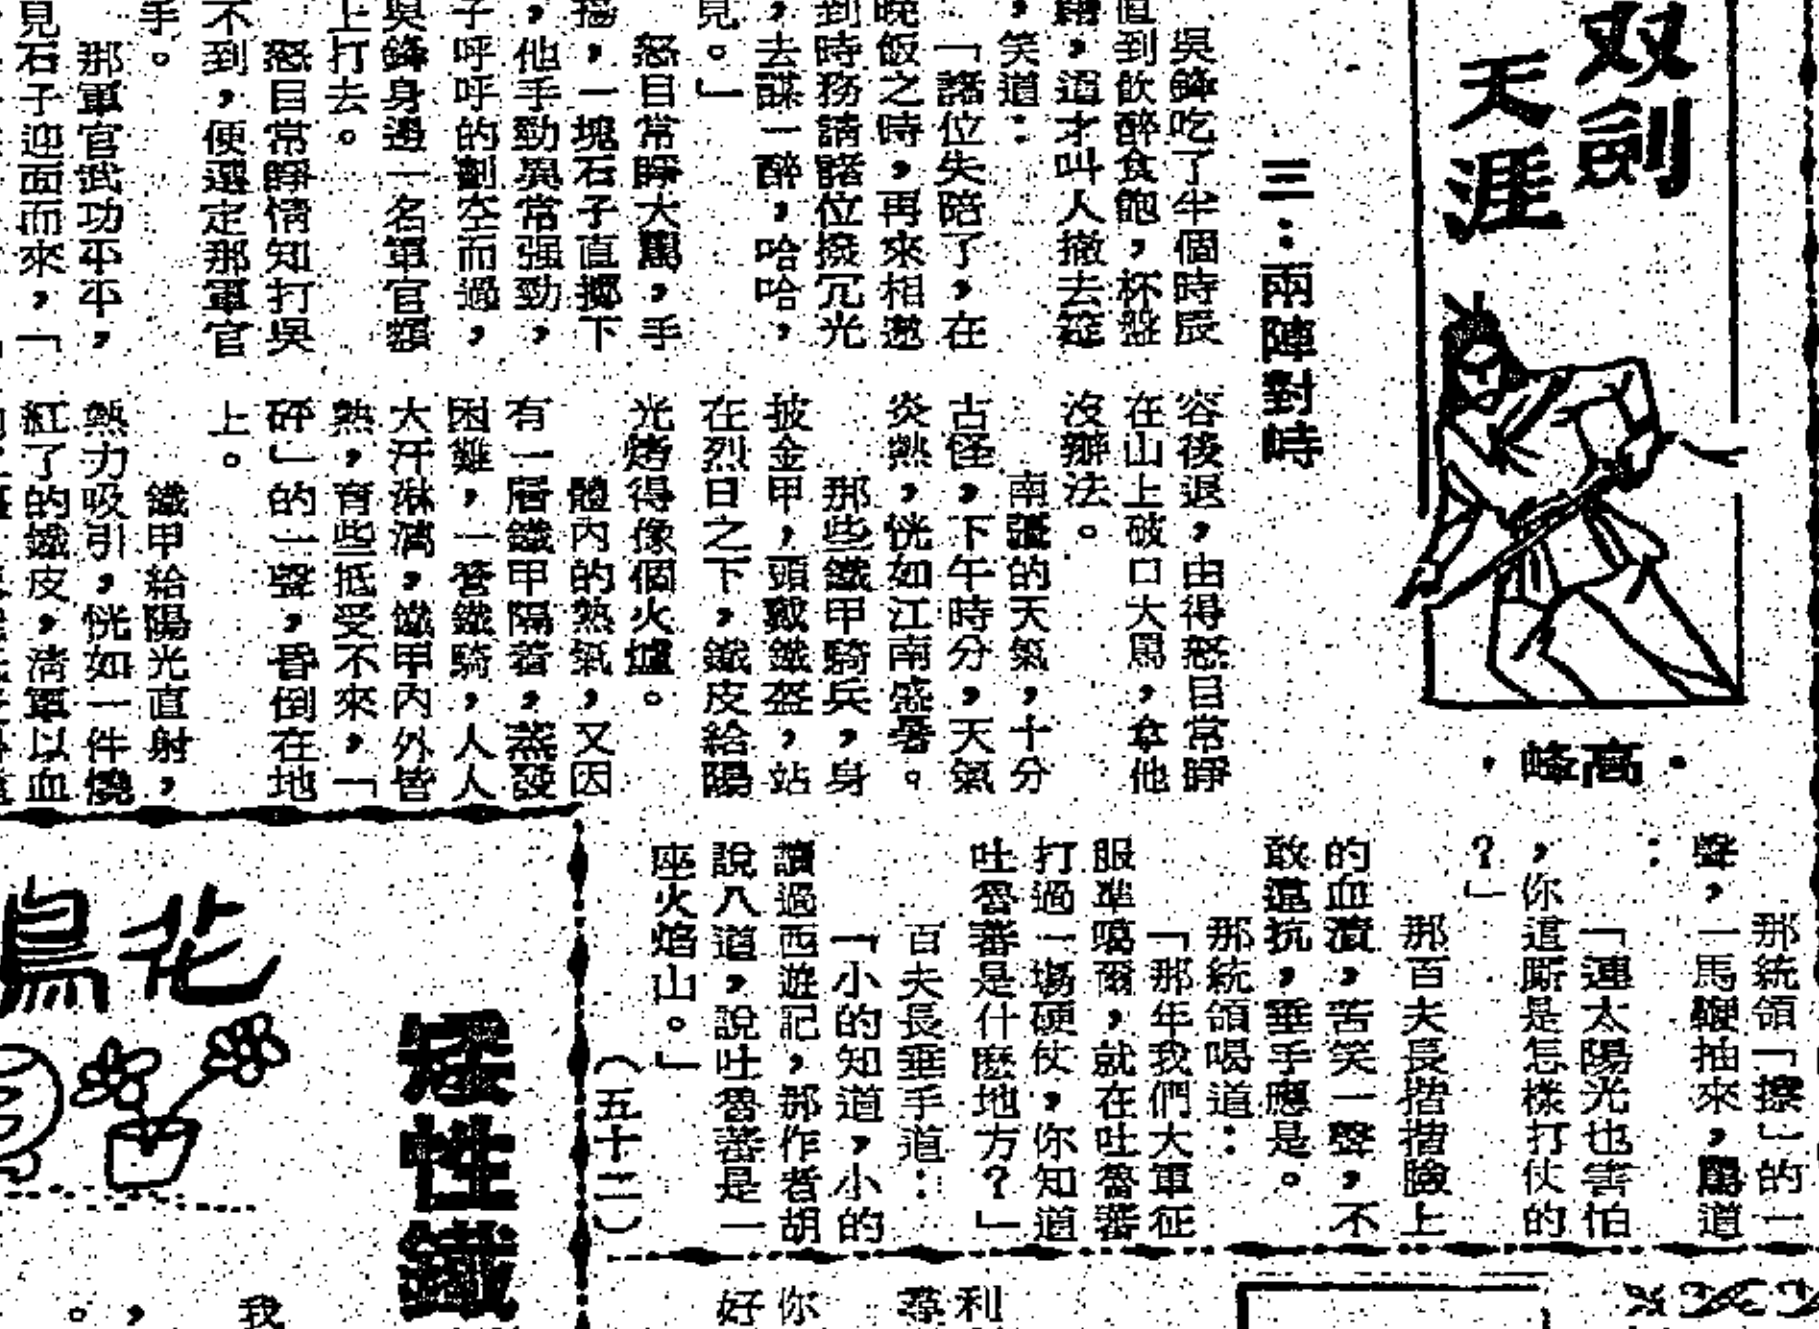 双劍
天涯
·高峰·
三：兩陣對時
吳鋒吃了半個時辰
直到飲醉食飽，杯盤
，這才叫人撤去筵
，笑道：
「諸位失陪了，在
晚飯之時，再來相邀
到時務請諸位撥冗光
，去謀一醉，哈哈，
見。」
怒目常睜大罵，手
揚，一塊石子直擲下
，他手勁異常强勁，
子呼呼的劃空而過，
吳鋒身邊一名軍官額
上打去。
怒目常睜情知打吳
不到，便選定那軍官
手。
那軍官武功平平，
見石子迎面而來，「
容後退，由得怒目常睜
在山上破口大罵，拿他
沒辦法。
南疆的天氣，十分
古怪，下午時分，天氣
炎熱，恍如江南盛暑。
那些鐵甲騎兵，身
披金甲，頭戴鐵盔，站
在烈日之下，鐵皮給陽
光烤得像個火爐。
體內的熱氣，又因
有一層鐵甲隔著，蒸發
困難，一眾鐵騎，人人
大汗淋漓，鐵甲內外皆
熱，有些抵受不來，「
砰」的一聲，昏倒在地
上。
鐵甲給陽光直射，
熱力吸引，恍如一件燒
紅了的鐵皮，清軍以血
那統領「擦」的一
聲，一馬鞭抽來，罵道
：
「連太陽光也害怕
，你這厮是怎樣打仗的
？」
那百夫長揩揩臉上
的血漬，苦笑一聲，不
敢違抗，垂手應是。
那統領喝道：
「那年我們大軍征
服準噶爾，就在吐魯蕃
打過一場硬仗，你知道
吐魯蕃是什麼地方？」
百夫長垂手道：
「小的知道，小的
讀過西遊記，那作者胡
說八道，說吐魯蕃是一
座火焰山。」
（五十二）
花鳥
性鐵
利
尋
你
好
我
，
。